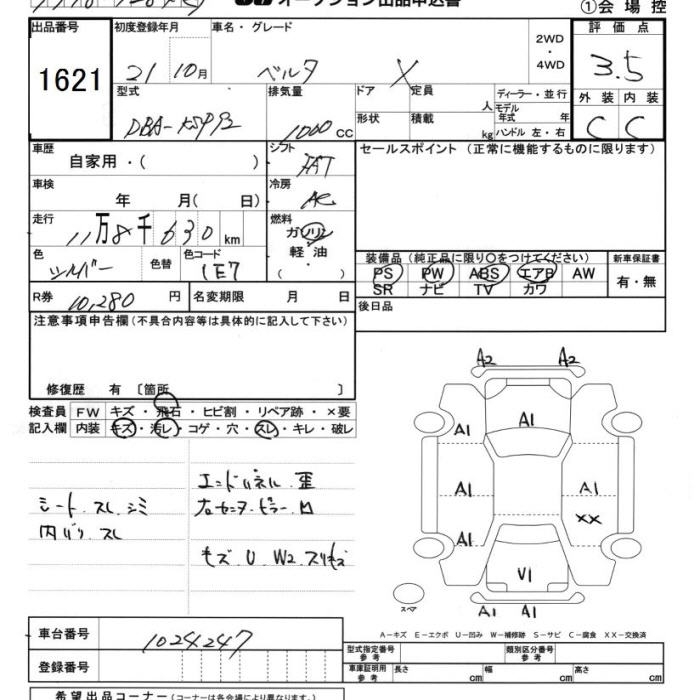 オークション出品申込書
①会場控
出品番号 初度登録年月 車名・グレード 評価点
1621 21 10月 ベルタ X 2WD・4WD 3.5
型式 排気量 ドア 定員 人 ディーラー・並行 外装 内装
DBA-KSP92 1000 CC 形状 積載 kg モデル年式 年 ハンドル 左・右 C C
車歴 シフト セールスポイント (正常に機能するものに限ります)
自家用・( ) FAT
車検 冷房
年 月( 日) AC
走行 燃料
11万8千630km ガソリン
軽・油
( )
色 色替 色コード 装備品 (純正品に限り〇をつけてください) 新車保証書
シルバー 1E7 PS PW ABS エアB AW 有・無
SR ナビ TV カワ
R券 10,280円 名変期限 月 日 後日品
注意事項申告欄(不具合内容等は具体的に記入して下さい)
修復歴 有 [箇所 ]
検査員 FW キズ・飛石・ヒビ割・リペア跡・×要
記入欄 内装 キズ・汚レ・コゲ・穴・スレ・キレ・破レ
エンドパネル 歪
シート スレ シミ
内バリ スレ
キズ U W2 スリキズ
A2 A2
A1 A1
A1 A1
XX
A1
V1
スペア
A1 A1
A-キズ E-エクボ U-凹み W-補修跡 S-サビ C-腐食 XX-交換済
車台番号 1024247
登録番号
型式指定番号 参考 類別区分番号 参考
車庫証明用 参考 長さ cm 幅 cm 高さ cm
希望出品コーナー(コーナーは各会場により異なります)